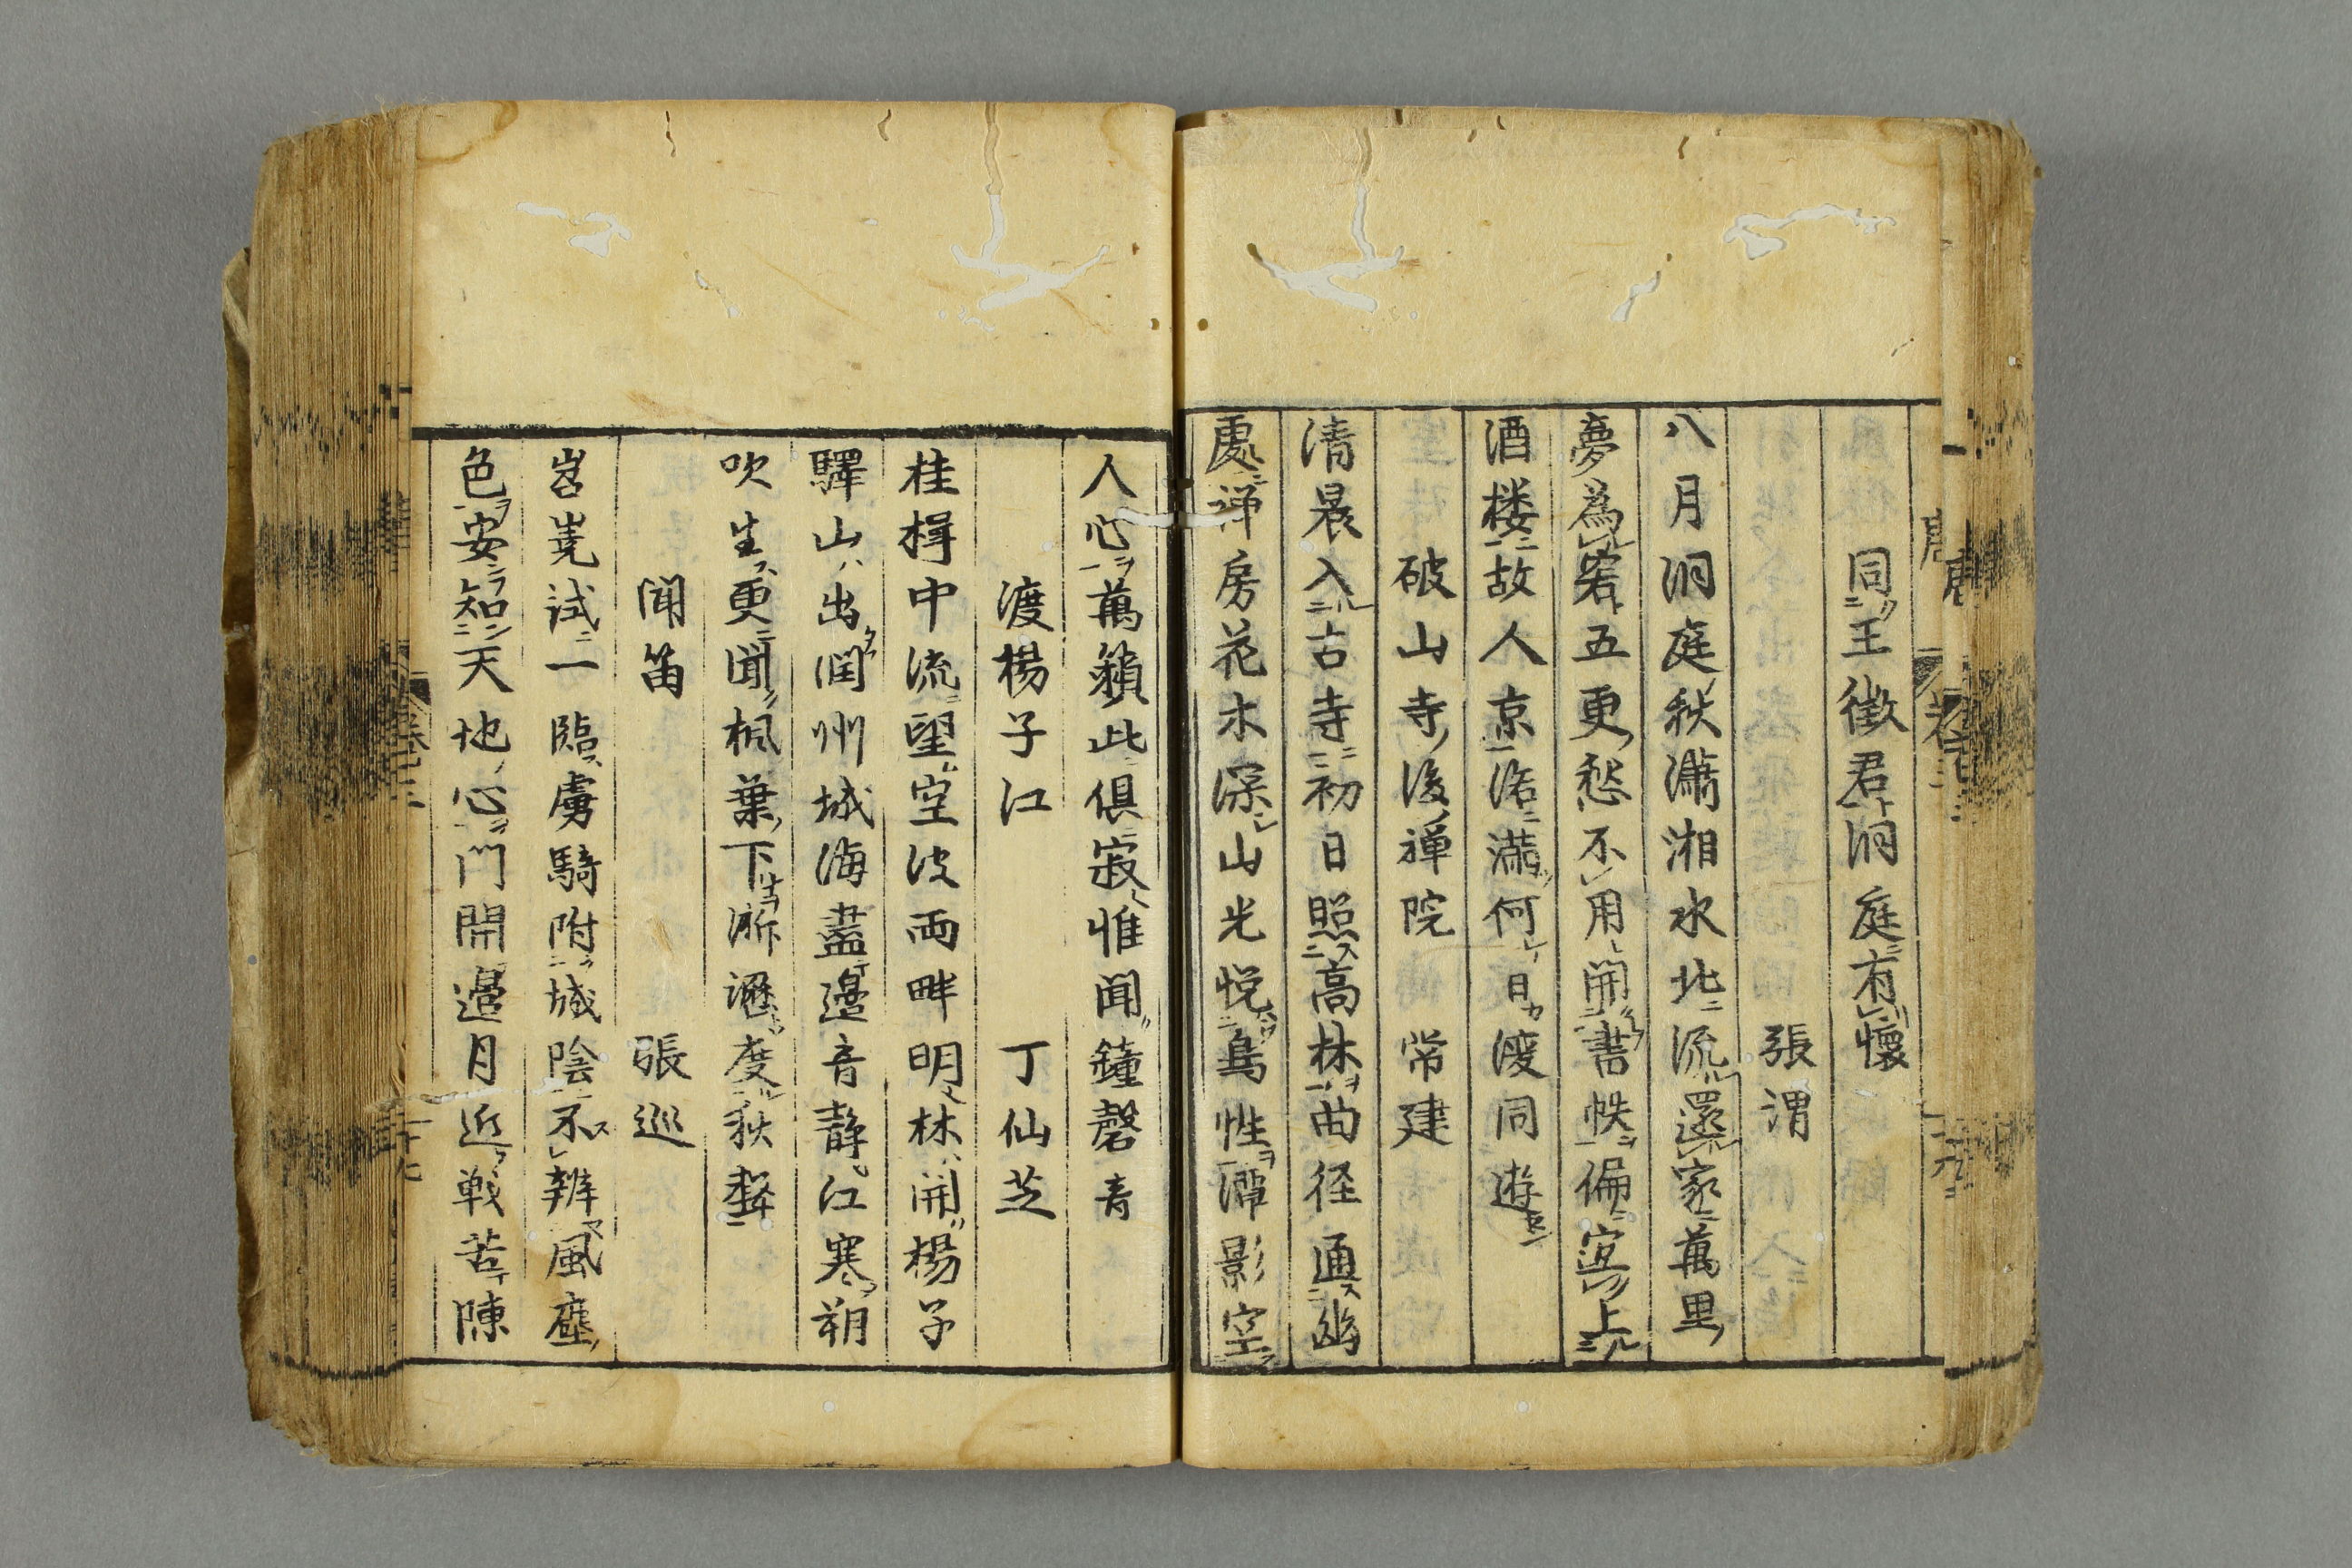 同王徵君洞庭有懷
張謂
八月洞庭秋瀟湘水北流還家萬里
夢為客五更愁不用開書帙偏宜上
酒楼故人京洛滿何日復同遊
破山寺後禅院 常建
清晨入古寺初日照高林曲径通幽
處禅房花木深山光悦鳥性潭影空
人心萬籟此俱寂惟聞鐘磬音
渡楊子江 丁仙芝
桂楫中流望空波両畔明林開楊子
驛山出潤州城海盡邉音静江寒朔
吹生更聞楓葉下淅瀝度秋聲
聞笛 張巡
岧嶤試一臨虜騎附城陰不辨風塵
色安知天地心門開邉月近戦苦陳